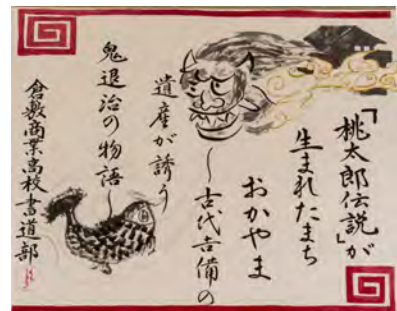 「桃太郎伝説」が
生まれたまち
おかやま
～古代吉備の
遺産が誘う
鬼退治の物語～
倉敷商業高校書道部